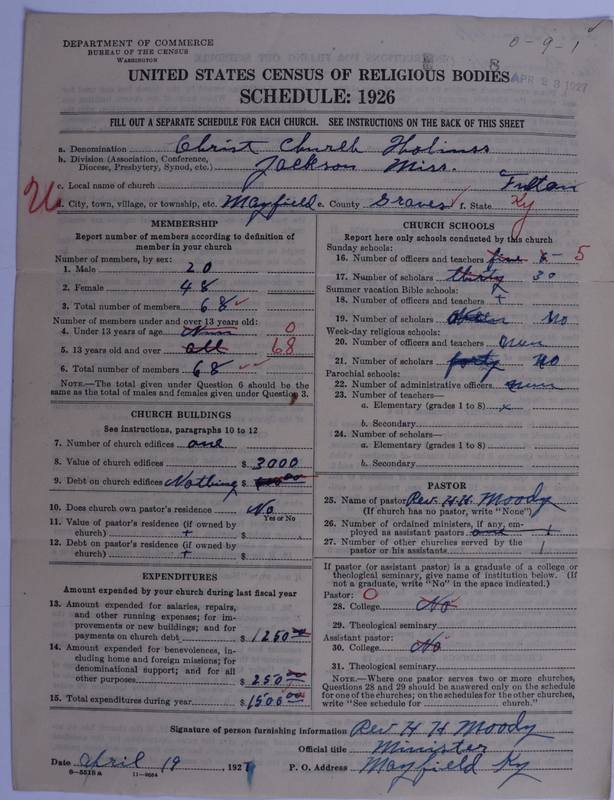 DEPARTMENT OF COMMERCE
BUREAU OF THE CENSUS
WASHINGTON
0-9-1
8
APR 23 1927
UNITED STATES CENSUS OF RELIGIOUS BODIES
SCHEDULE: 1926
FILL OUT A SEPARATE SCHEDULE FOR EACH CHURCH. SEE INSTRUCTIONS ON THE BACK OF THIS SHEET
a. Denomination Christ Church Holiness
b. Division (Association, Conference, Diocese, Presbytery, Synod, etc.) Jackson Miss.
c. Local name of church Fulton
d. City, town, village, or township, etc. Mayfield e. County Graves f. State Ky
MEMBERSHIP
Report number of members according to definition of member in your church
Number of members, by sex:
1. Male 20
2. Female 48
3. Total number of members 68
Number of members under and over 13 years old:
4. Under 13 years of age 0
5. 13 years old and over all 68
6. Total number of members 68
NOTE.—The total given under Question 6 should be the same as the total of males and females given under Question 3.
CHURCH BUILDINGS
See instructions, paragraphs 10 to 12
7. Number of church edifices one
8. Value of church edifices $ 3000
9. Debt on church edifices Nothing $
10. Does church own pastor's residence No
Yes or No
11. Value of pastor's residence (if owned by church) + $
12. Debt on pastor's residence (if owned by church) + $
EXPENDITURES
Amount expended by your church during last fiscal year
13. Amount expended for salaries, repairs, and other running expenses; for improvements or new buildings; and for payments on church debt $ 1250 00
14. Amount expended for benevolences, including home and foreign missions; for denominational support; and for all other purposes $ 250 00
15. Total expenditures during year $ 1500 00
CHURCH SCHOOLS
Report here only schools conducted by this church
Sunday schools:
16. Number of officers and teachers five 5
17. Number of scholars thirty 30
Summer vacation Bible schools:
18. Number of officers and teachers +
19. Number of scholars No
Week-day religious schools:
20. Number of officers and teachers
21. Number of scholars forty No
Parochial schools:
22. Number of administrative officers
23. Number of teachers—
a. Elementary (grades 1 to 8) x
b. Secondary
24. Number of scholars—
a. Elementary (grades 1 to 8)
b. Secondary
PASTOR
25. Name of pastor Rev. H. H. Moody
(If church has no pastor, write "None")
26. Number of ordained ministers, if any, employed as assistant pastors one 1
27. Number of other churches served by the pastor or his assistants 1
If pastor (or assistant pastor) is a graduate of a college or theological seminary, give name of institution below. (If not a graduate, write "No" in the space indicated.)
Pastor: 0
28. College No
29. Theological seminary
Assistant pastor:
30. College No
31. Theological seminary
NOTE.—Where one pastor serves two or more churches, Questions 28 and 29 should be answered only on the schedule for one of the churches; on the schedules for the other churches, write "See schedule for church."
Signature of person furnishing information Rev H H Moody
Official title Minister
Date April 19, 1927 P. O. Address Mayfield Ky
8—5518 a 11—9054